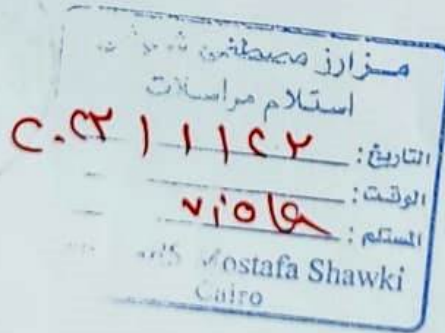 مزارز مصطفى شوقي
استلام مراسلات
التاريخ: ٢٠٢٣ / ١ / ٢٢
الوقت:
المستلم: viola
Mostafa Shawki
Cairo